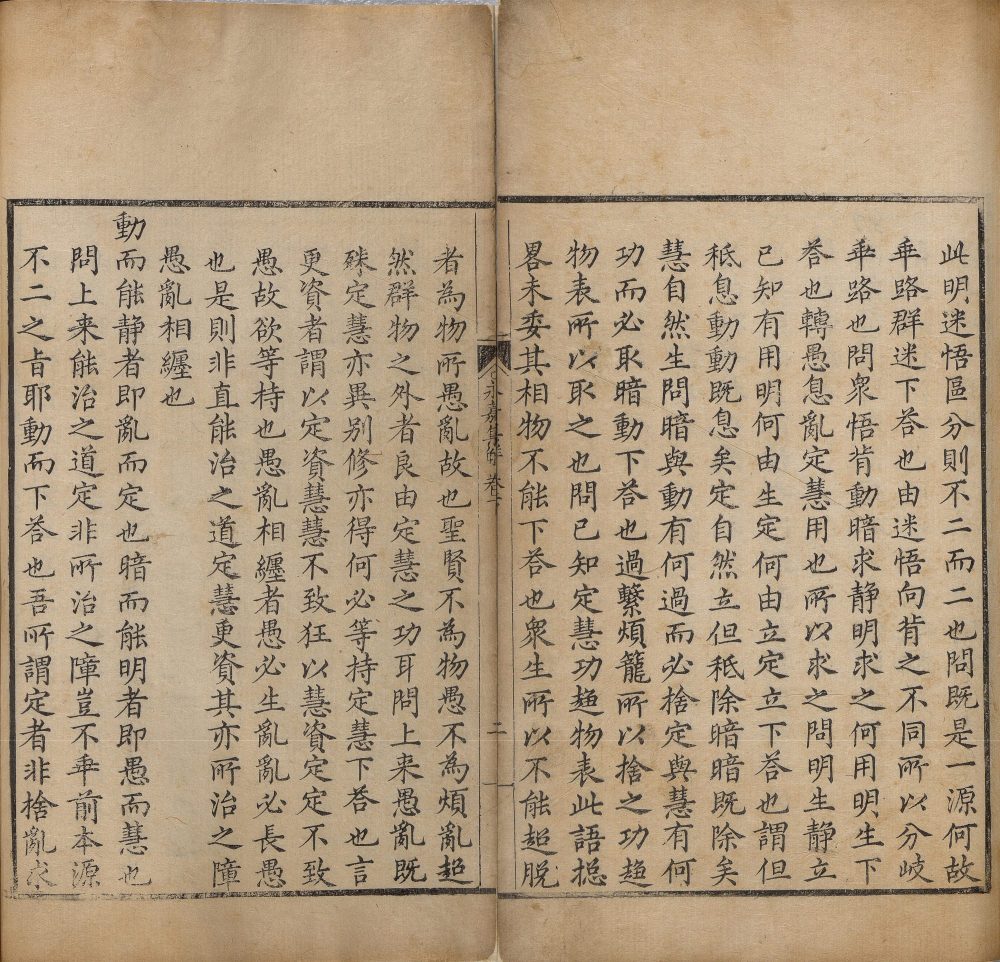 此明迷悟區分則不二而二也問既是一源何故
乖路群迷下荅也由迷悟向背之不同所以分岐
乖路也問衆悟背動暗求静明求之何用明生下
荅也轉愚息亂定慧用也所以求之問明生静立
已知有用明何由生定何由立定立下荅也謂但
秖息動動既息矣定自然立但秖除暗暗既除矣
慧自然生問暗與動有何過而必捨定與慧有何
功而必取暗動下荅也過繫煩籠所以捨之功趍
物表所以取之也問已知定慧功趍物表此語揔
畧未委其相物不能下荅也衆生所以不能超脱
永嘉集 卷下
二
者為物所愚亂故也聖賢不為物愚不為煩亂超
然群物之外者良由定慧之功耳問上来愚亂既
殊定慧亦異别修亦得何必等持定慧下荅也言
更資者謂以定資慧慧不致狂以慧資定定不致
愚故欲等持也愚亂相纏者愚必生亂亂必長愚
也是則非直能治之道定慧更資其亦所治之障
愚亂相纏也
動而能静者即亂而定也暗而能明者即愚而慧也
問上来能治之道定非所治之障豈不乖前本源
不二之旨耶動而下荅也吾所謂定者非捨亂求